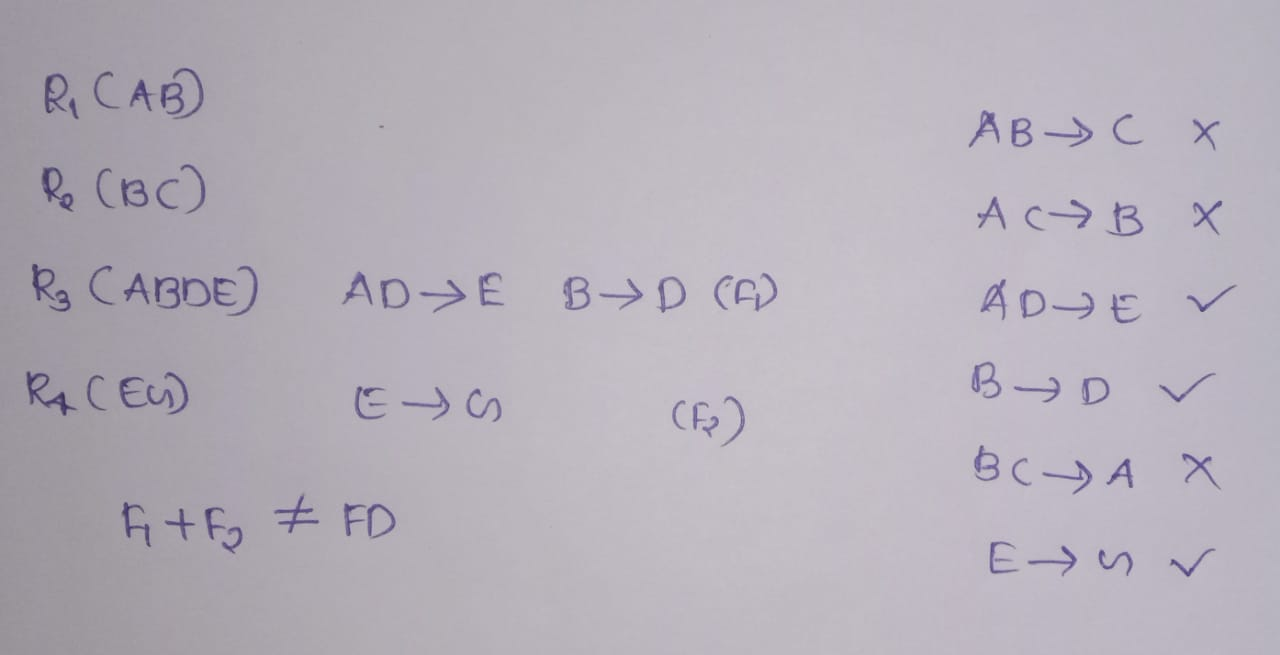 R₁ (AB)
R₂ (BC)
R₃ (ABDE) AD→E B→D (F₁)
R₄ (EG) E→G (F₂)
F₁+F₂ ≠ FD
AB→C ×
AC→B ×
AD→E ✓
B→D ✓
BC→A ×
E→G ✓